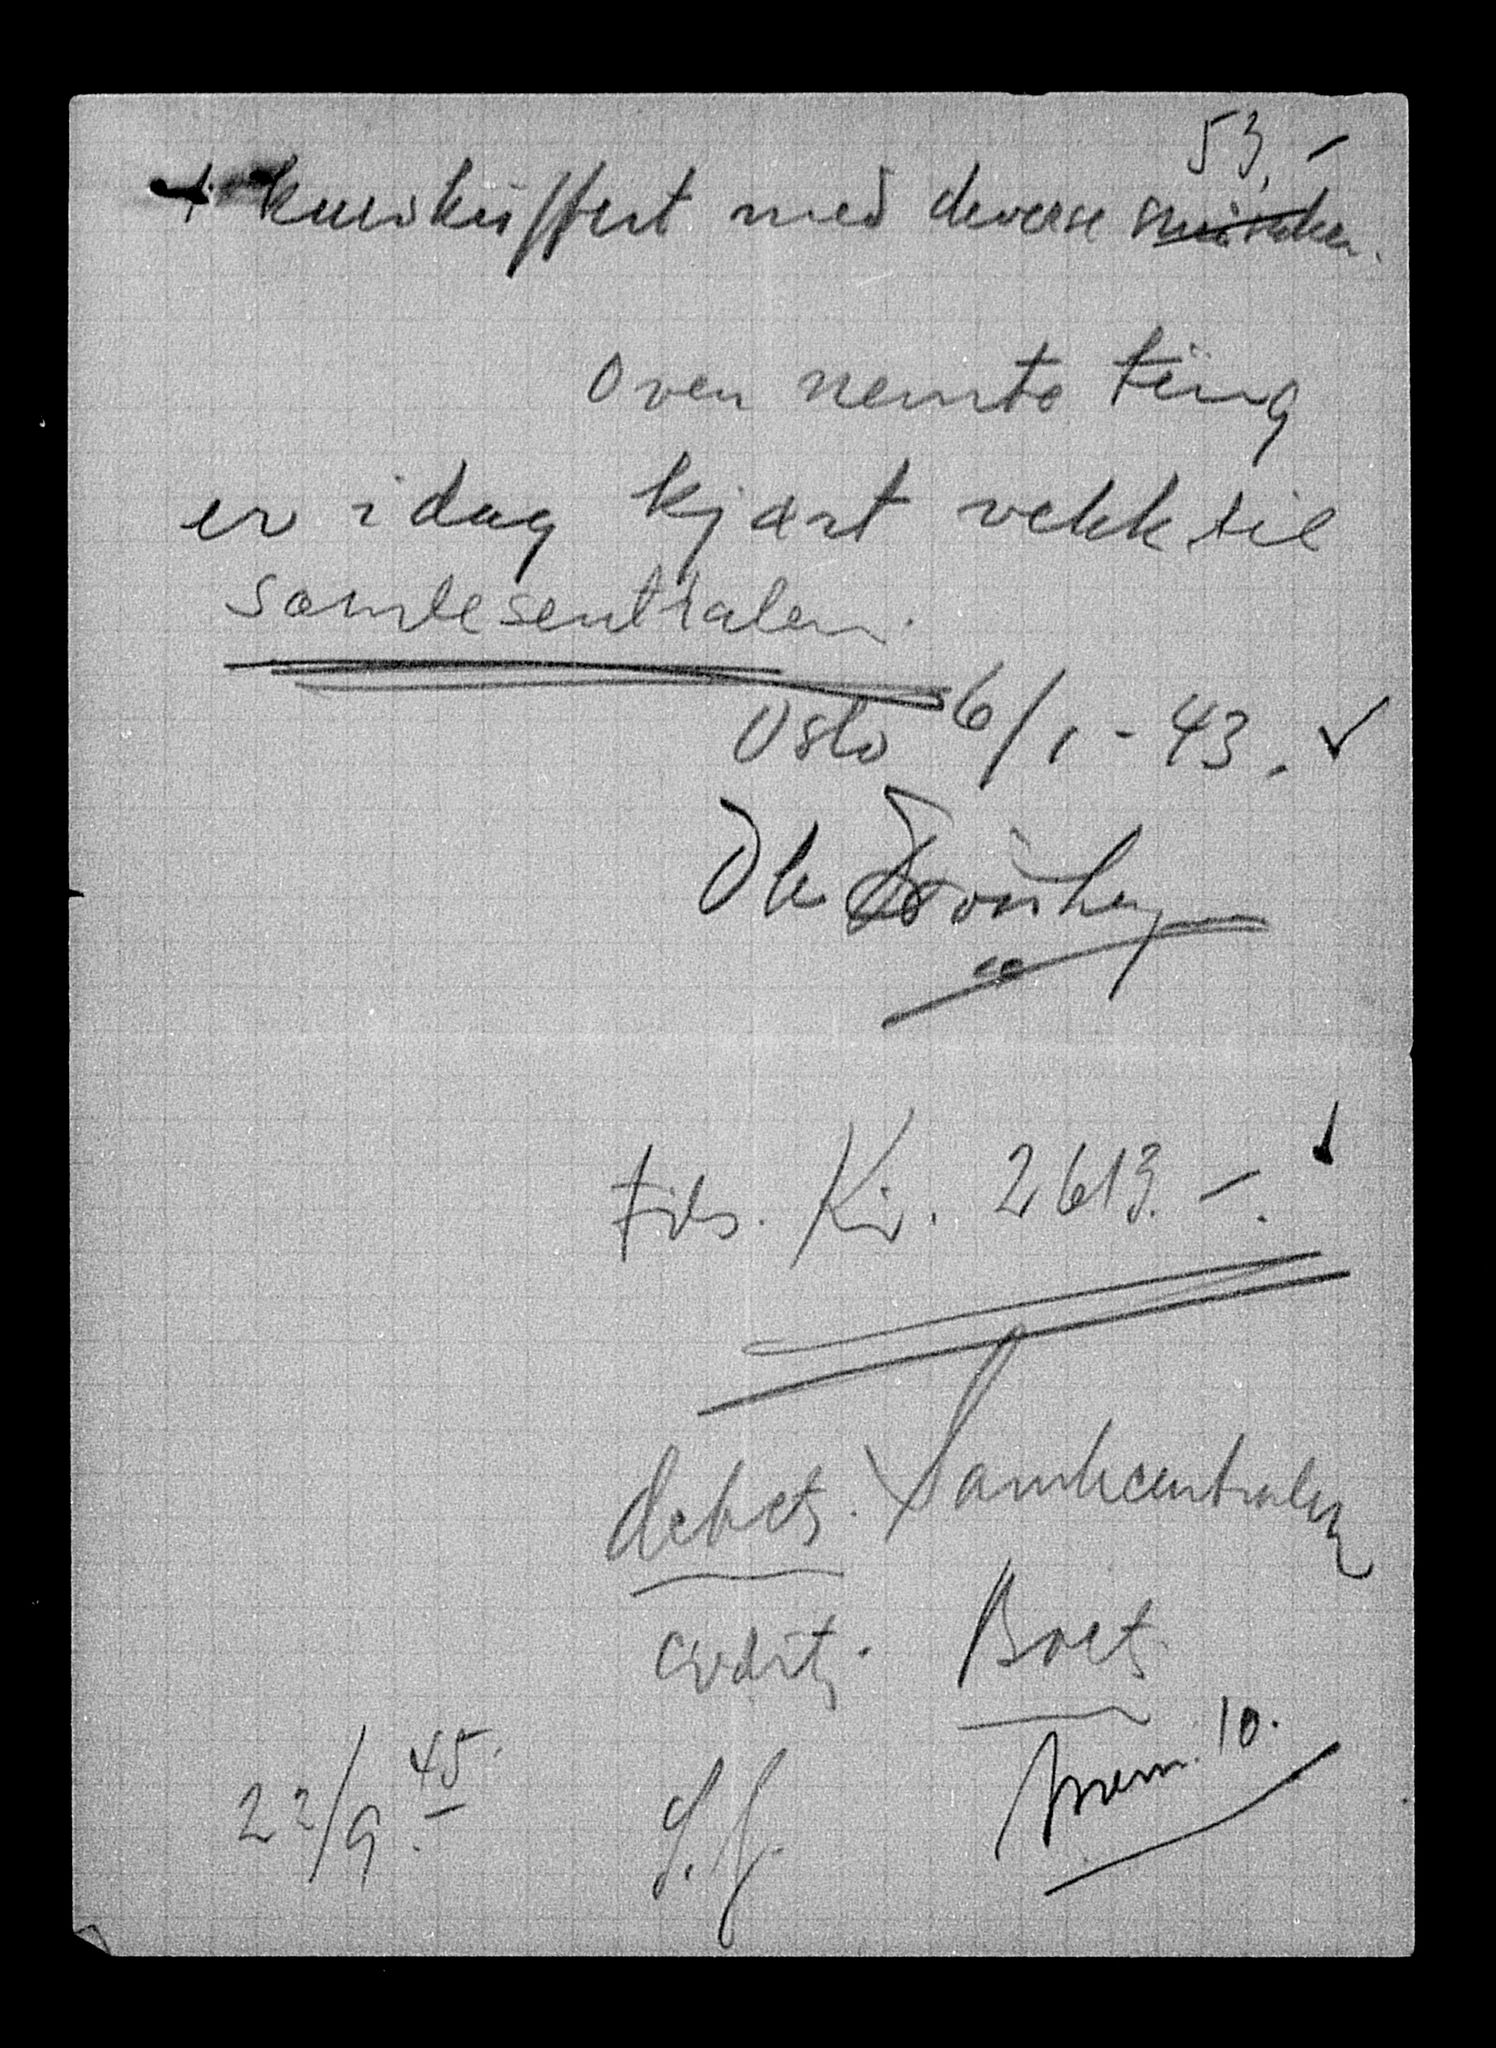 53,-
1 kurvkuffert med diverse
Oven nemte ting
er idag kjørt vekk til
samlesentralen.
Oslo 6/1-43.
Ole
tils. Kr. 2613.-.
debet. Samlecentralen
credit. Boet
mem. 10.
22/9 45.